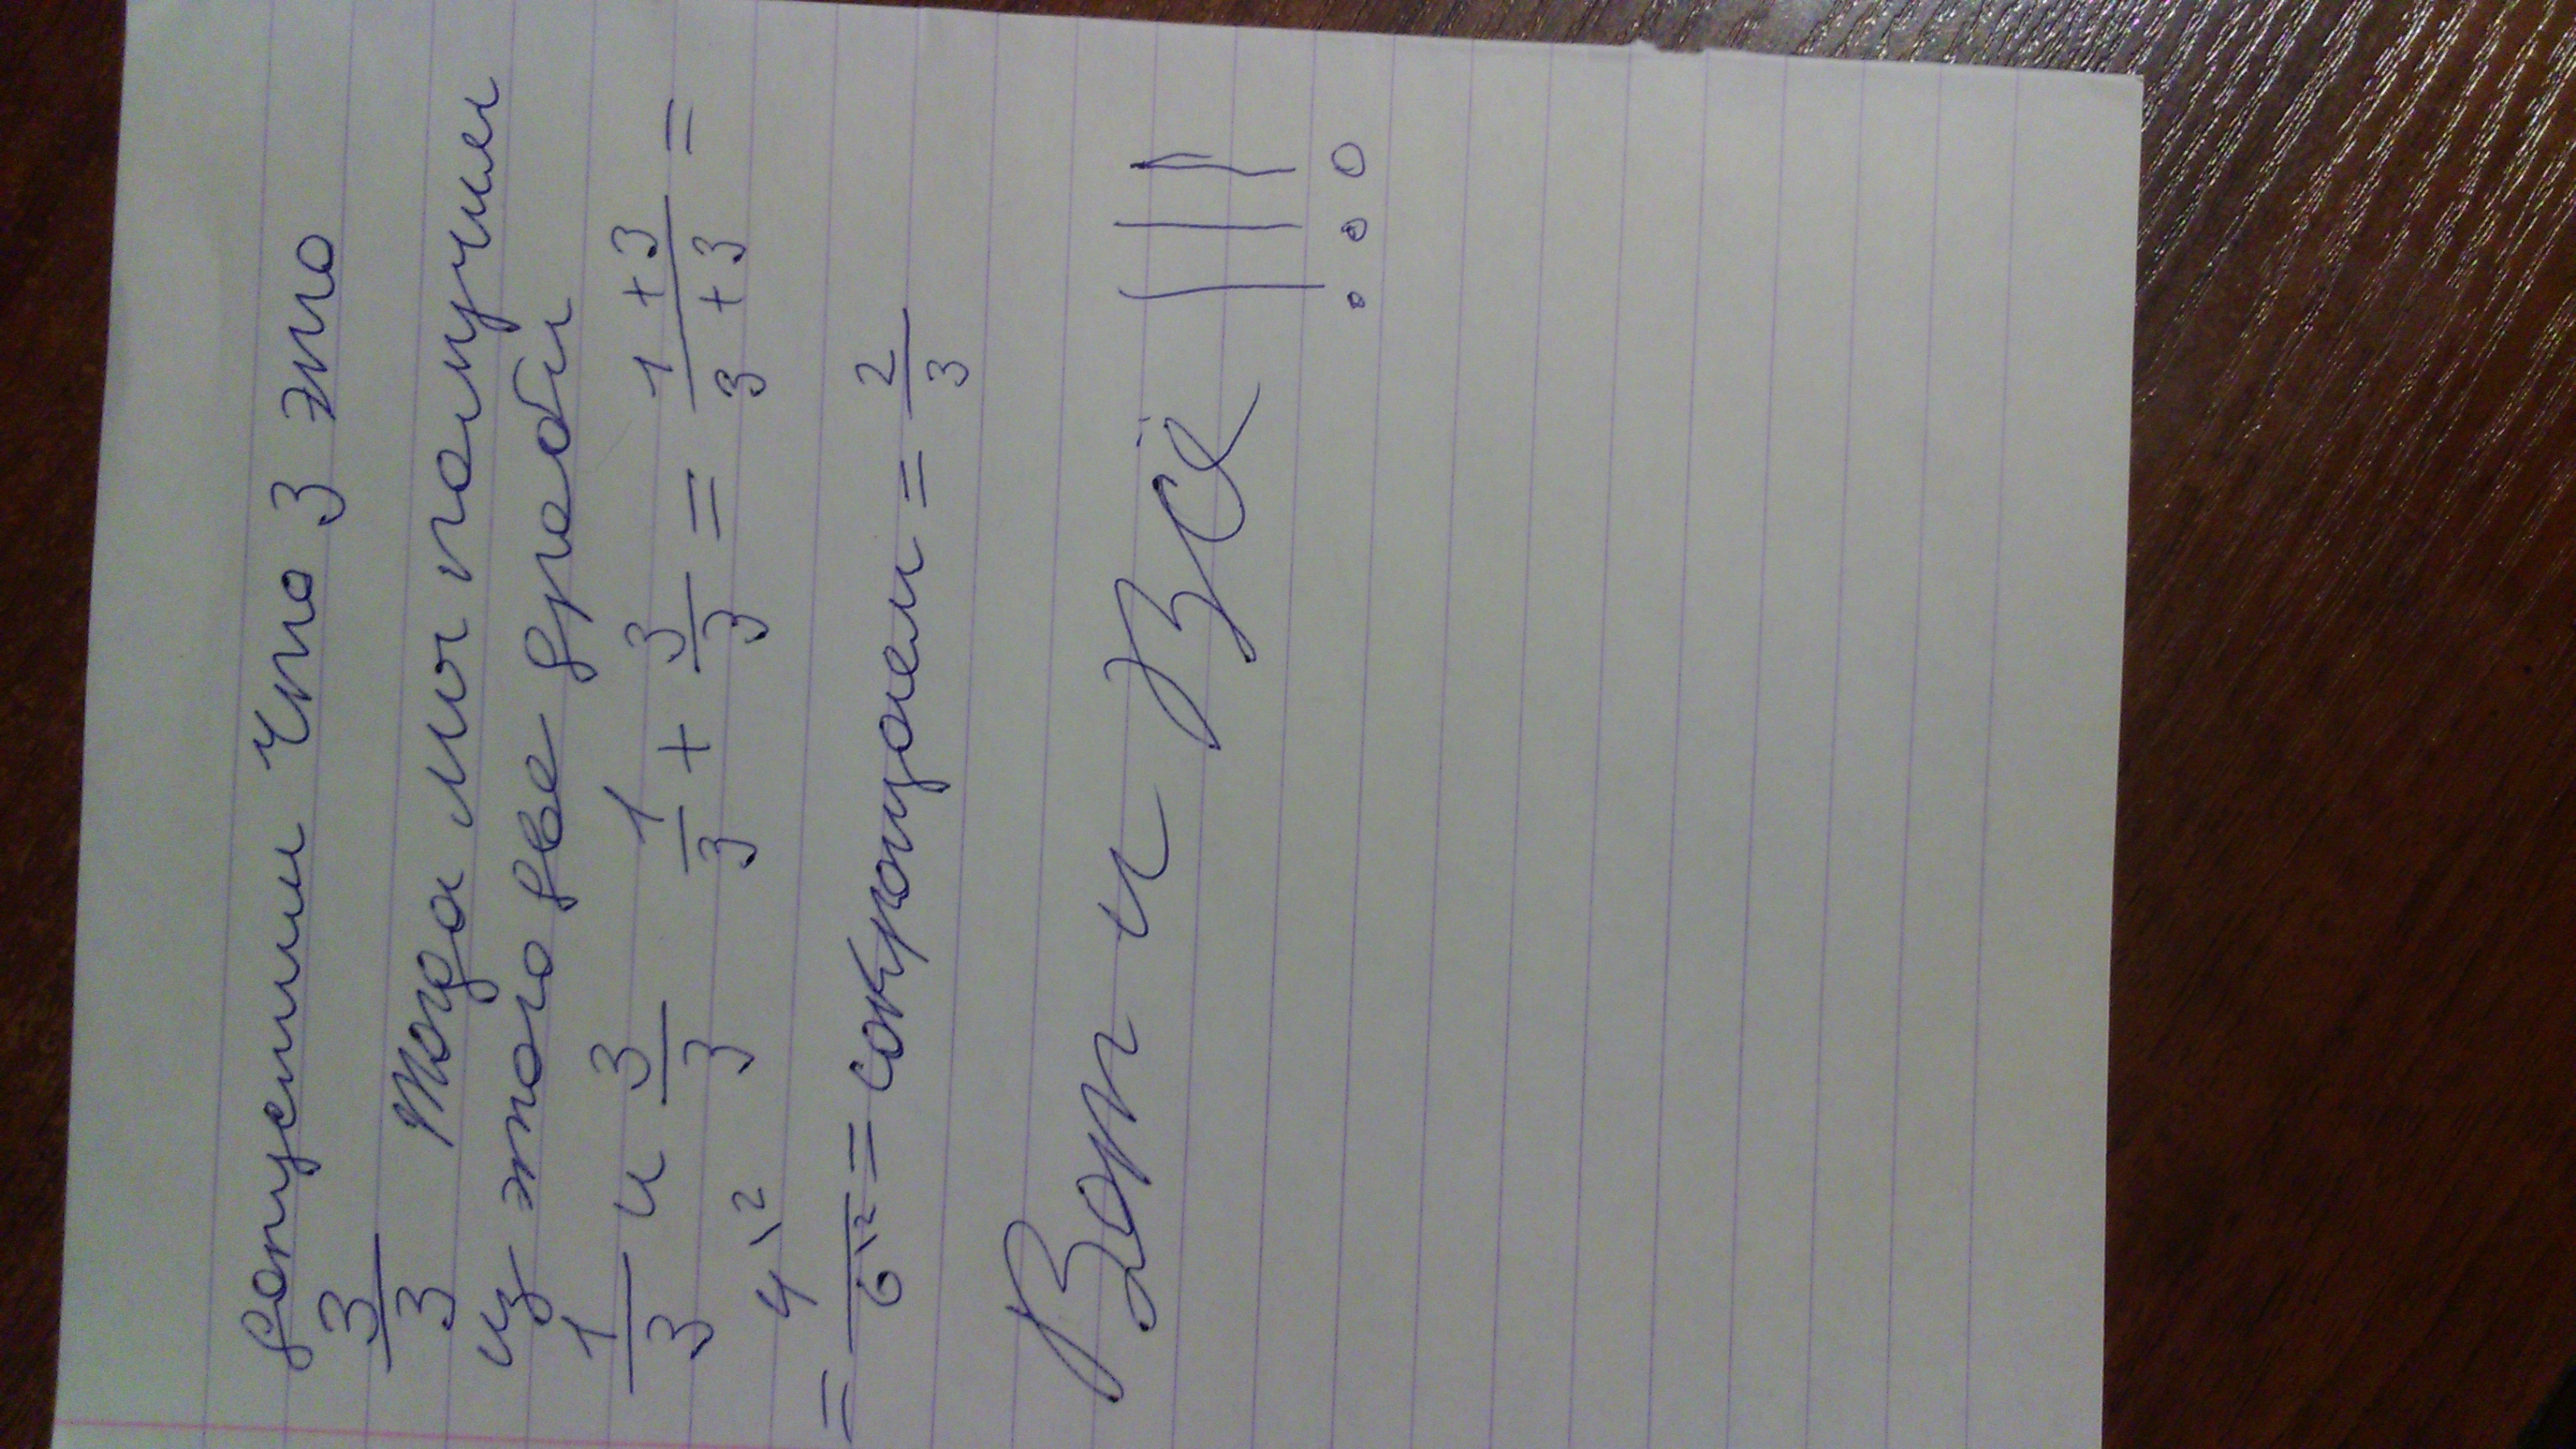 допустим что 3 это
3/3 Тогда мы получим
из этого две дроби
1/3 и 3/3 1/3 + 3/3 = 1+3/3+3 =
= 4\2/6\2 = сокращаем = 2/3
Вот и Всё !!!